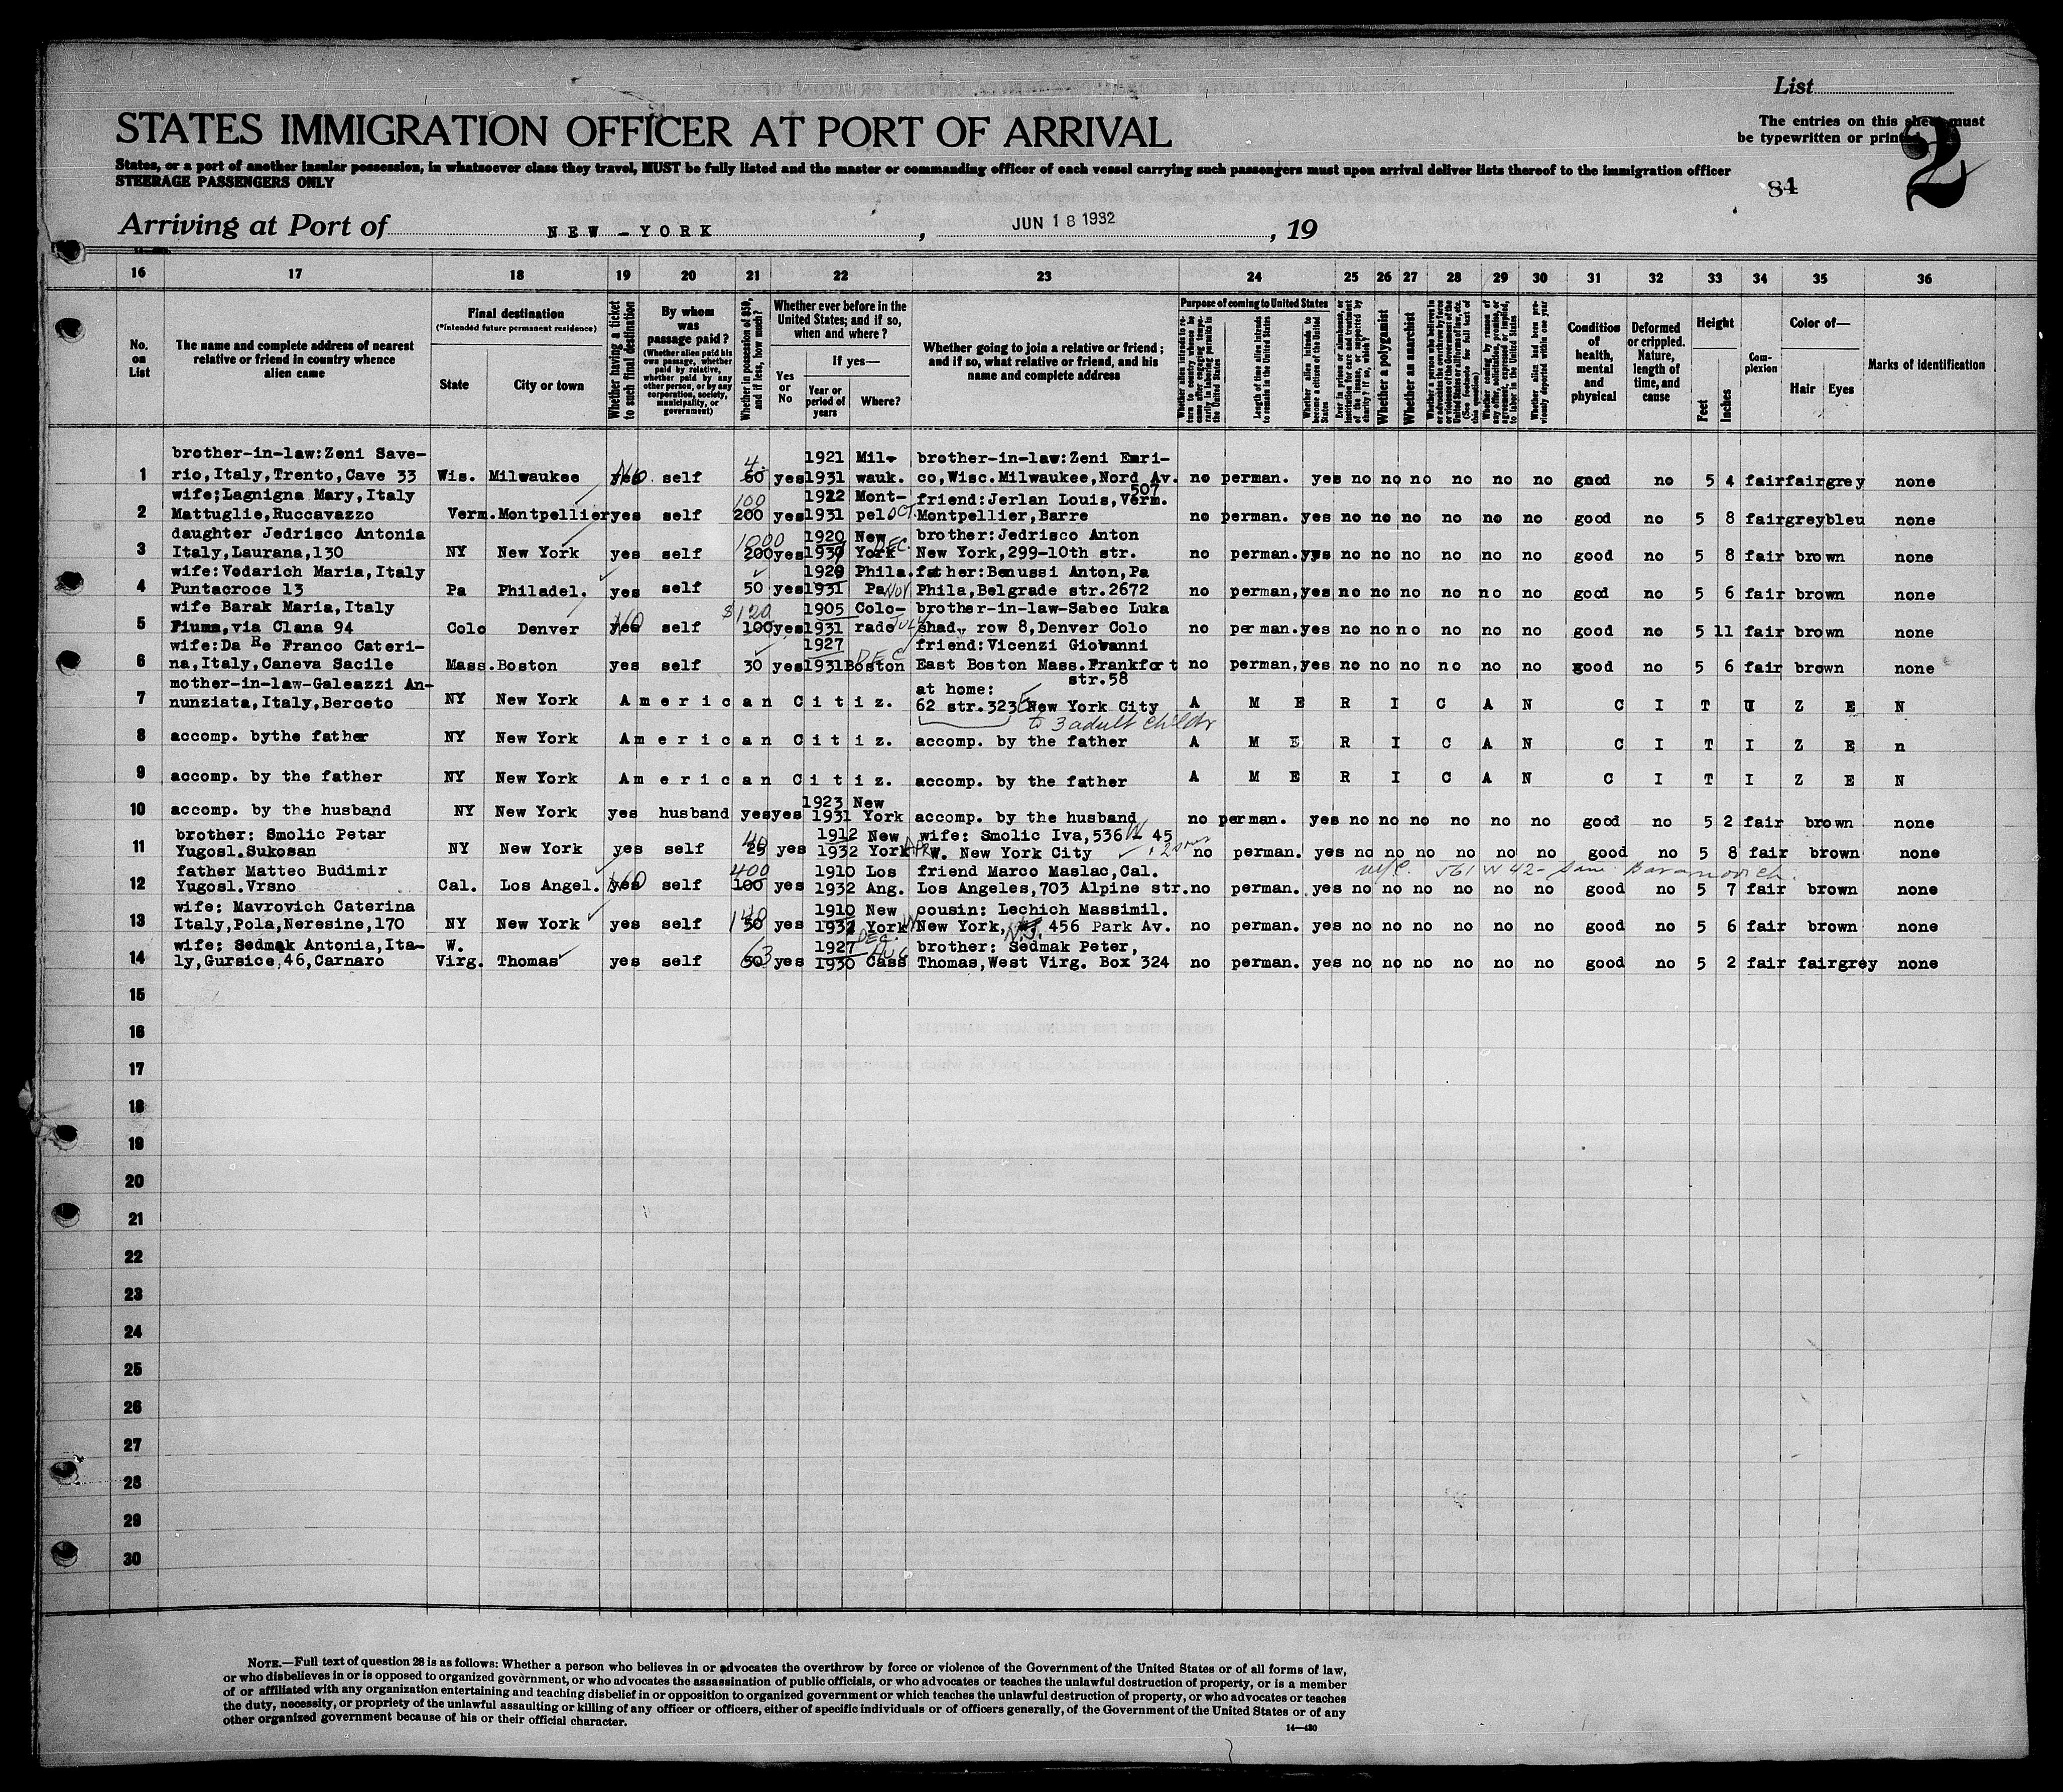 List
STATES IMMIGRATION OFFICER AT PORT OF ARRIVAL
The entries on this sheet must
be typewritten or printed
2
States, or a port of another insular possession, in whatsoever class they travel, MUST be fully listed and the master or commanding officer of each vessel carrying such passengers must upon arrival deliver lists thereof to the immigration officer
STEERAGE PASSENGERS ONLY
84
Arriving at Port of NEW-YORK, JUN 18 1932, 19
16 17 18 19 20 21 22 23 24 25 26 27 28 29 30 31 32 33 34 35 36
No. on List
The name and complete address of nearest relative or friend in country whence alien came
Final destination
(*Intended future permanent residence)
State
City or town
Whether having a ticket to such final destination
By whom was passage paid?
(Whether alien paid his own passage, whether paid by relative, whether paid by any other person, or by any corporation, society, municipality, or government)
Whether in possession of $50, and if less, how much?
Whether ever before in the United States; and if so, when and where?
Yes or No
If yes—
Year or period of years
Where?
Whether going to join a relative or friend; and if so, what relative or friend, and his name and complete address
Purpose of coming to United States
Length of time alien intends to remain in the United States
Whether alien intends to become a citizen of the United States
Whether a polygamist
Whether an anarchist
Whether alien had been previously deported within one year
Condition of health, mental and physical
Deformed or crippled. Nature, length of time, and cause
Height
Feet
Inches
Complexion
Color of—
Hair
Eyes
Marks of identification
brother-in-law:Zeni Save- 1921 Mil- brother-in-law:Zeni Enri-
1 rio,Italy,Trento,Cave 33 Wis. Milwaukee yes No self 60 4 yes 1931 wauk. co,Wisc.Milwaukee,Nord Av. no perman. yes no no no no no no good no 5 4 fair fair grey none
507
wife;Lagnigna Mary,Italy 100 1922 Mont- friend:Jerlan Louis,Verm.
2 Mattuglie,Ruccavazzo Verm. Montpellier yes self 200 yes 1931 pel OCT. Montpellier,Barre no perman. yes no no no no no no good no 5 8 fair grey bleu none
daughter Jedrisco Antonia 1000 1920 New DEC. brother:Jedrisco Anton
3 Italy,Laurana,130 NY New York yes self 200 yes 1930 York New York,299-10th str. no perman. yes no no no no no no good no 5 8 fair brown none
wife:Vodarich Maria,Italy 1920 Phila. father:Benussi Anton,Pa
4 Puntacroce 13 Pa Philadel. yes self 50 yes 1931 Pa NOV Phila,Belgrade str.2672 no perman, yes no no no no no no good no 5 6 fair brown none
wife Barak Maria,Italy $120 1905 Colo- brother-in-law-Sabec Luka
5 Fiume,via Clana 94 Colo Denver yes No self 100 yes 1931 rado JULY shad, row 8,Denver Colo no perman. yes no no no no no no good no 5 11 fair brown none
wife:Da Re Franco Cateri- 1927 DEC friend:Vicenzi Giovanni
6 na,Italy,Caneva Sacile Mass. Boston yes self 30 yes 1931 Boston East Boston Mass.Frankfort no perman, yes no no no no no no good no 5 6 fair brown none
str.58
mother-in-law-Galeazzi An- at home:
7 nunziata,Italy,Berceto NY New York American Citiz. 62 str.323 E New York City AMERICAN CITIZEN
to 3 adult childr
8 accomp. bythe father NY New York American Citiz. accomp. by the father AMERICAN CITIZEn
9 accomp. by the father NY New York American Citiz. accomp. by the father AMERICAN CITIZEN
1923 New
10 accomp. by the husband NY New York yes husband yes yes 1931 York accomp. by the husband no perman. yes no no no no no no good no 5 2 fair brown none
brother: Smolic Petar 40 1912 New wife: Smolic Iva,536 W - 45
11 Yugosl.Sukosan NY New York yes self 25 yes 1932 York APR W. New York City no perman. yes no no no no no no good no 5 8 fair brown none
father Matteo Budimir 400 1910 Los friend Marco Maslac,Cal. 561 W 42- Sam Baramovich.
12 Yugosl.Vrsno Cal. Los Angel. yes No self 100 yes 1932 Ang. Los Angeles,703 Alpine str. no perman. yes no no no no no no good no 5 7 fair brown none
wife: Mavrovich Caterina 140 1910 New cousin: Lechich Massimil.
13 Italy,Pola,Neresine,170 NY New York yes self 50 yes 1932 York New York, N.J. 456 Park Av. no perman. yes no no no no no no good no 5 6 fair brown none
wife: Sedmak Antonia,Ita- W. 63 1927 DEC. AUG brother: Sedmak Peter,
14 ly,Gursice,46,Carnaro Virg. Thomas yes self 50 yes 1930 Cass Thomas,West Virg. Box 324 no perman. yes no no no no no no good no 5 2 fair fair grey none
15
16
17
18
19
20
21
22
23
24
25
26
27
28
29
30
NOTE.—Full text of question 28 is as follows: Whether a person who believes in or advocates the overthrow by force or violence of the Government of the United States or of all forms of law,
or who disbelieves in or is opposed to organized government, or who advocates the assassination of public officials, or who advocates or teaches the unlawful destruction of property, or is a member
of or affiliated with any organization entertaining and teaching disbelief in or opposition to organized government or which teaches the unlawful destruction of property, or who advocates or teaches
the duty, necessity, or propriety of the unlawful assaulting or killing of any officer or officers, either of specific individuals or of officers generally, of the Government of the United States or of any
other organized government because of his or their official character.
14—480